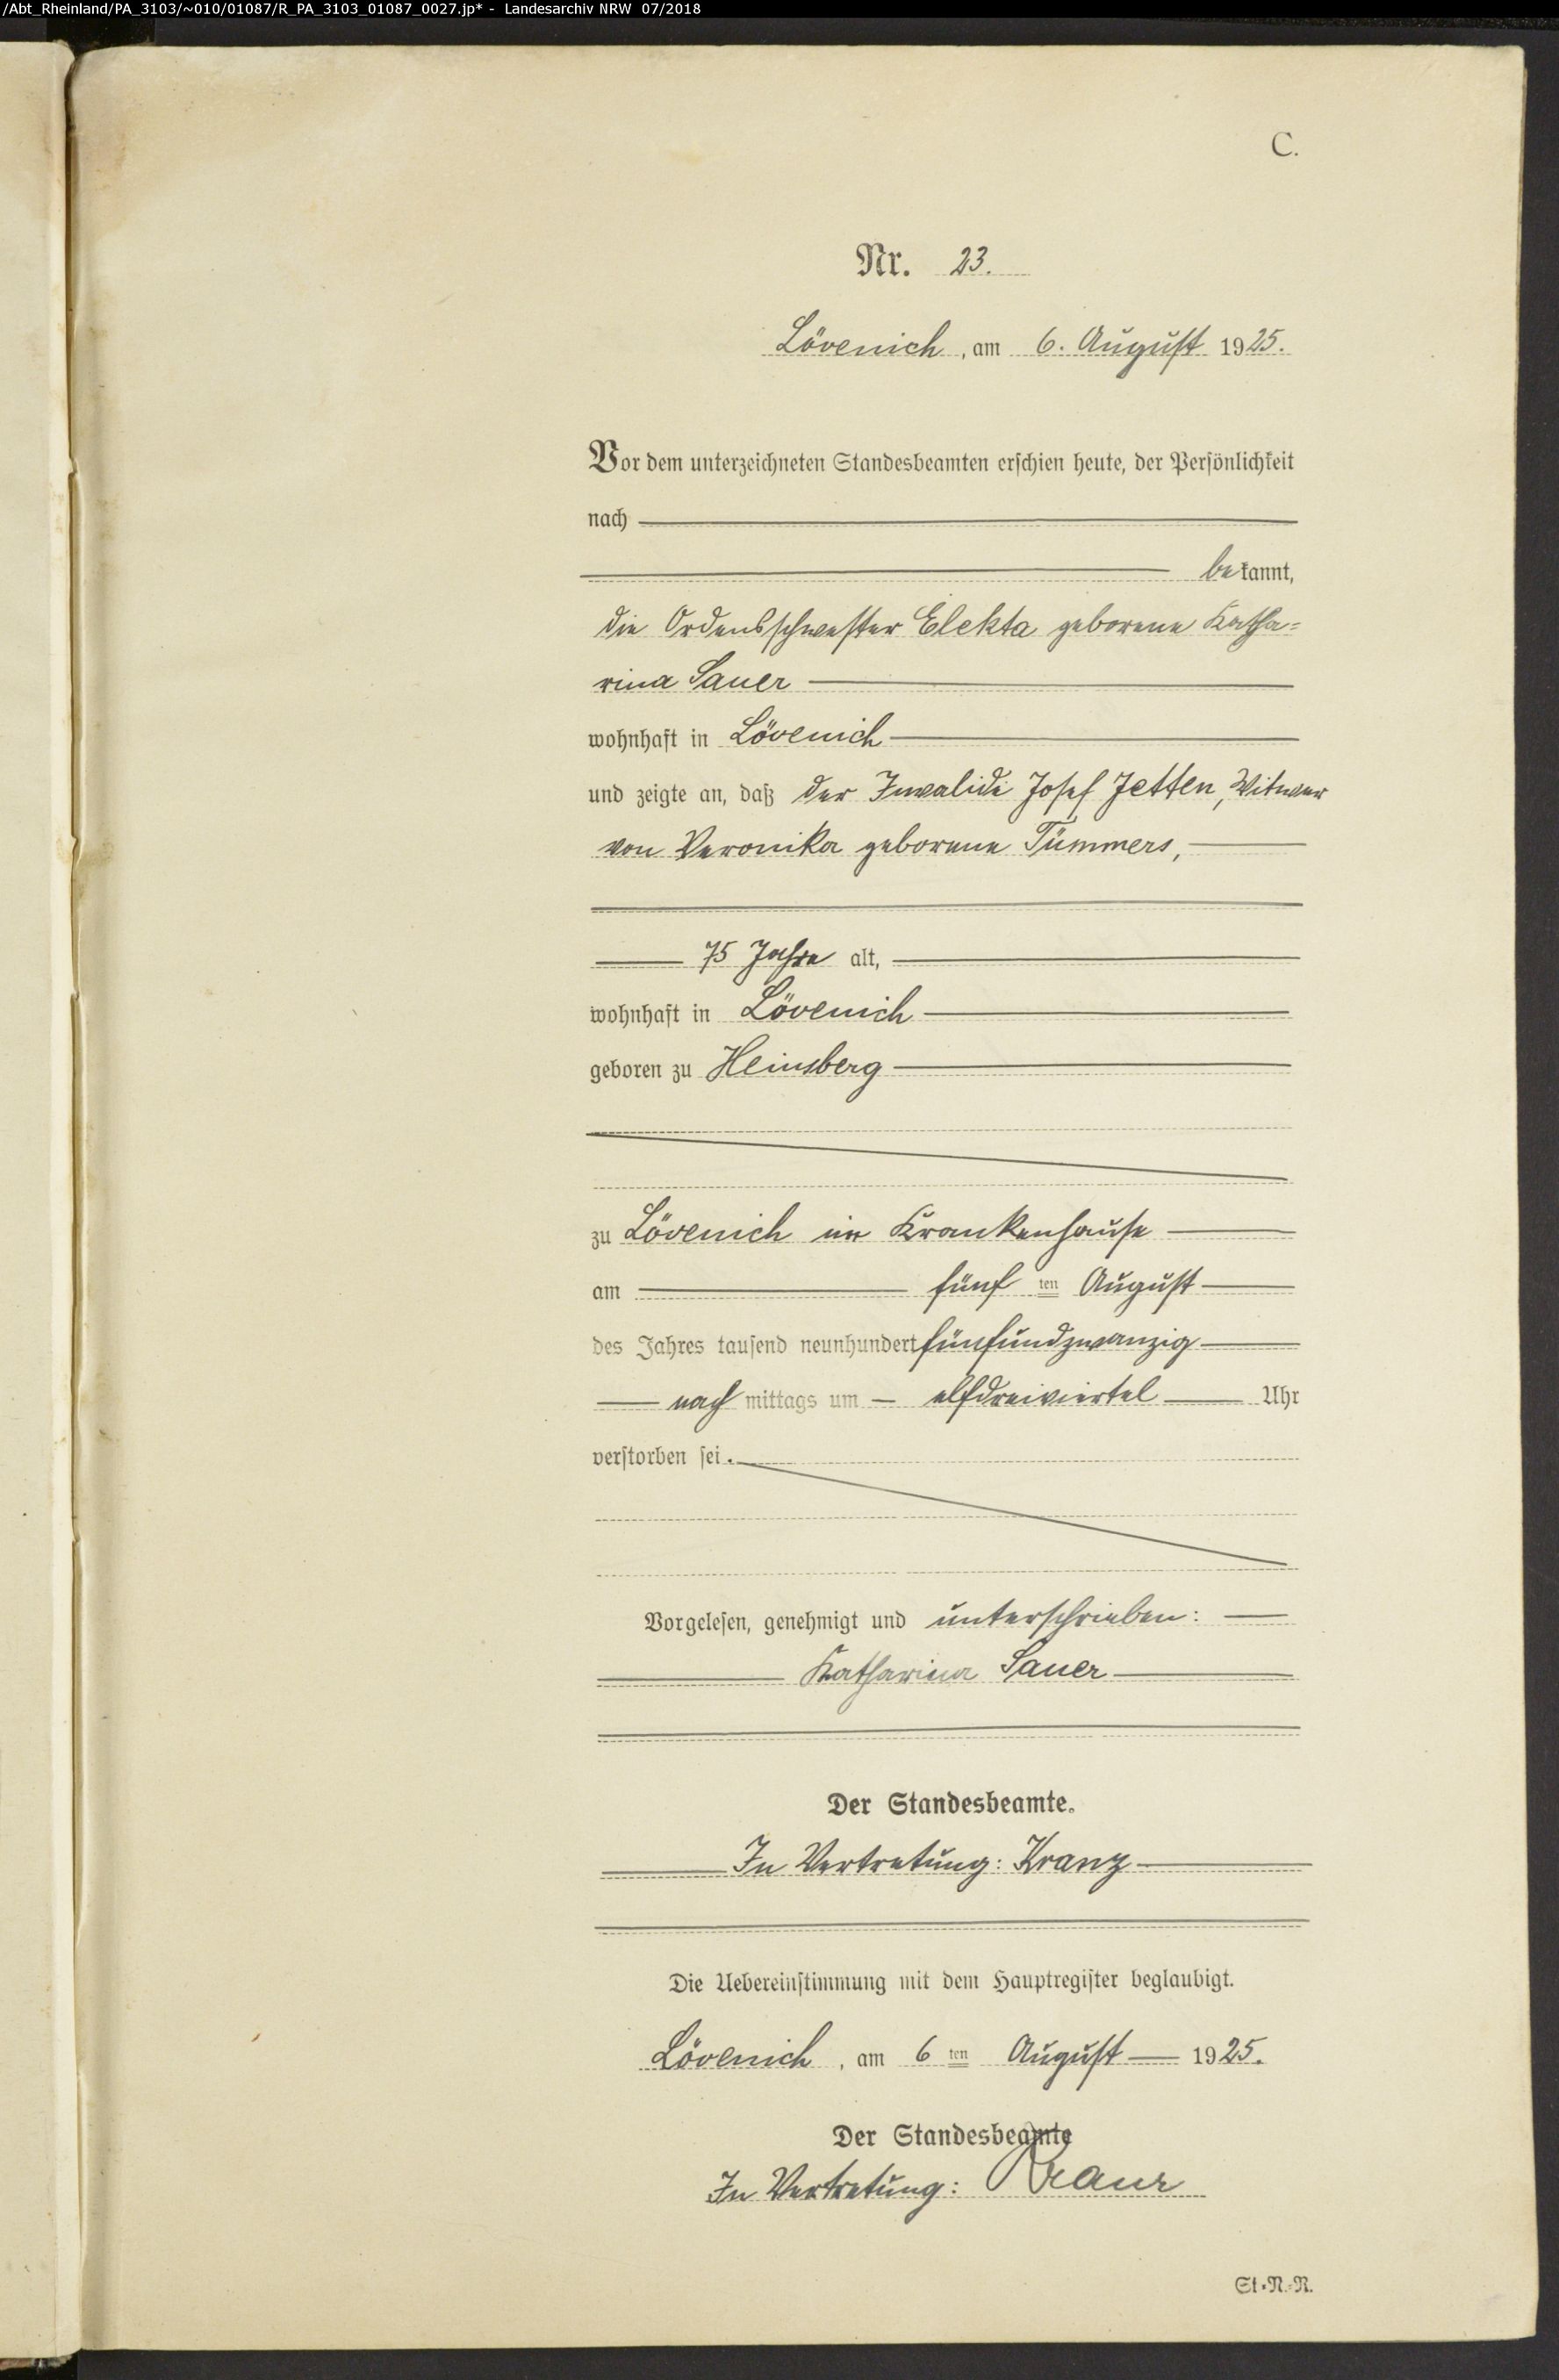 /Abt_Rheinland/PA_3103/~010/01087/R_PA_3103_01087_0027.jp* - Landesarchiv NRW 07/2018
C.
Nr. 23.
Lövenich, am 6. August 1925.
Vor dem unterzeichneten Standesbeamten erschien heute, der Persönlichkeit
nach
bekannt,
die Ordensschwester Elekta geborene Katha=
rina Sauer
wohnhaft in Lövenich
und zeigte an, daß der Invalide Josef Jetten, Witwer
von Veronika geborene Tümmers,
75 Jahre alt,
wohnhaft in Lövenich
geboren zu Heinsberg
zu Lövenich im Krankenhause
am fünf ten August
des Jahres tausend neunhundert fünfundzwanzig
nach mittags um elfdreiviertel Uhr
verstorben sei.
Vorgelesen, genehmigt und unterschrieben:
Katharina Sauer
Der Standesbeamte.
In Vertretung: Kranz
Die Uebereinstimmung mit dem Hauptregister beglaubigt.
Lövenich, am 6 ten August 1925.
Der Standesbeamte
In Vertretung: Kranz
St.=N.=R.